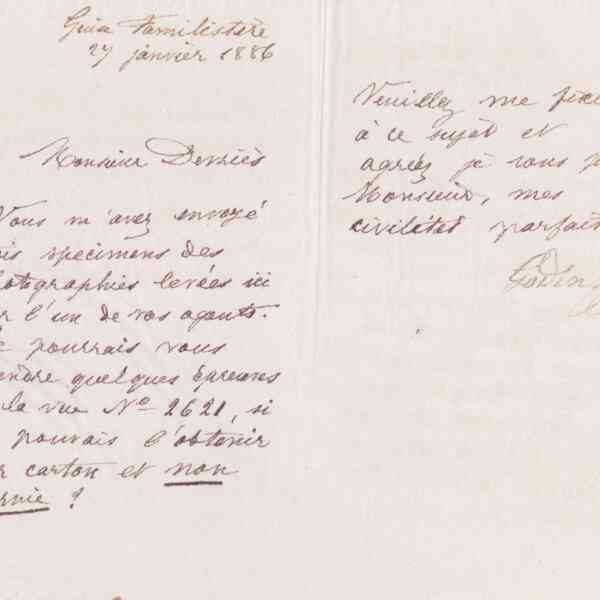 Guise Familistère
27 janvier 1886
Monsieur Derriès
Vous m'avez envoyé
is specimens des
hotographies levées ici
r l'un de vos agents.
pourrais vous
endre quelques épreuves
la vue No 2621, si
pouvais l'obtenir
r carton et non
ernie ?
Veuillez me fixe
à ce sujet et
agréez je vous p
Monsieur, mes
civilités parfait
Godin